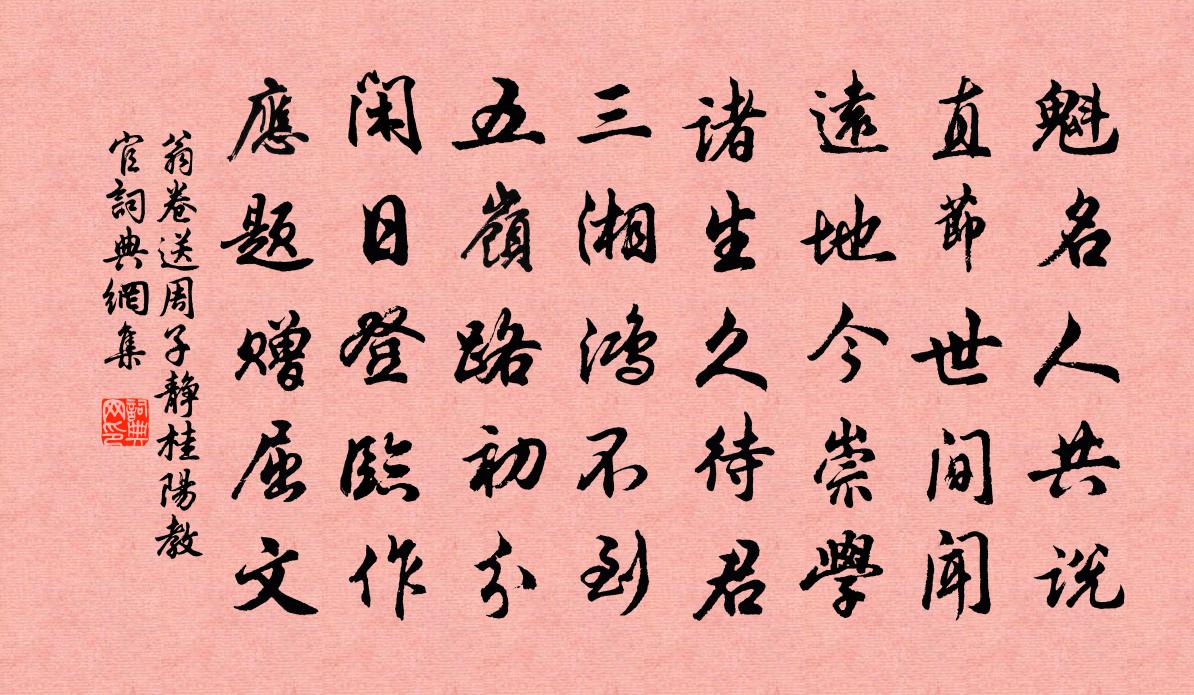 魁名人共说
直節世间闻
遠地今崇學
诸生久待君
三湘鸿不到
五嶺路初分
闲日登臨作
應题赠屈文
翁卷送周子静桂陽教
官詞典網集
詞典
网印